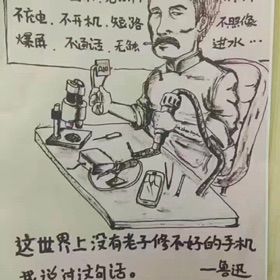 不充电、不开机、短路 不照像
爆屏、不通话、无触 进水…
这世界上没有老子修不好的手机
我说过这句话。 —鲁迅